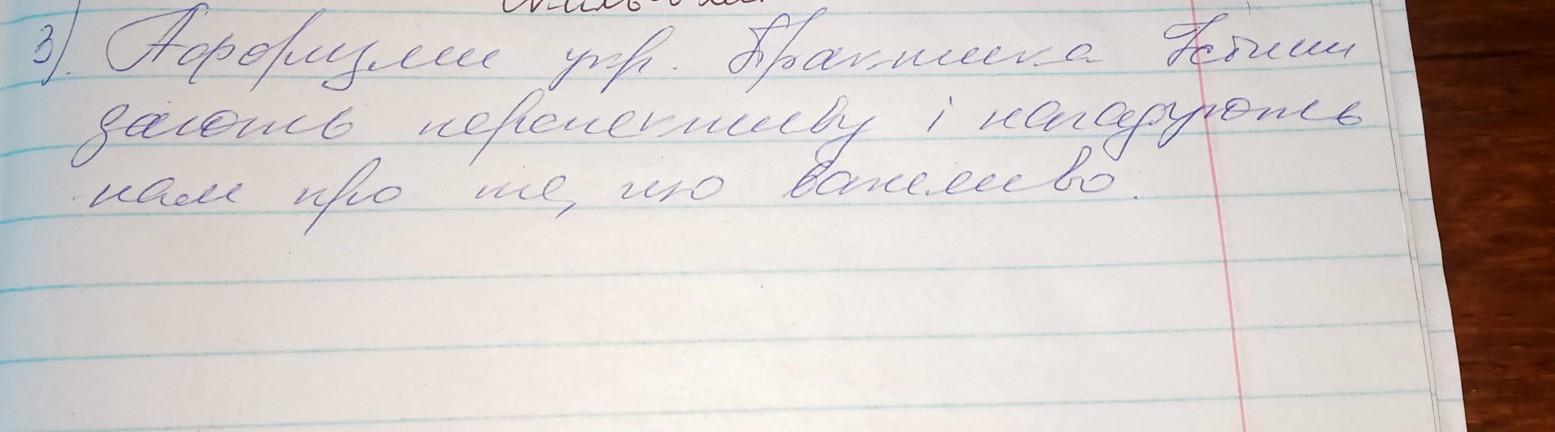 3). Афоризми укр. Практика Устими
дають перспективу і нагадують
нам про те, що важливо.